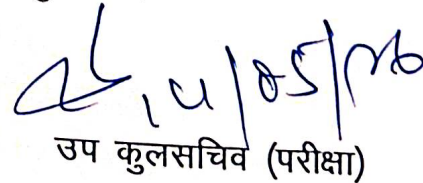 14/05/26
उप कुलसचिव (परीक्षा)